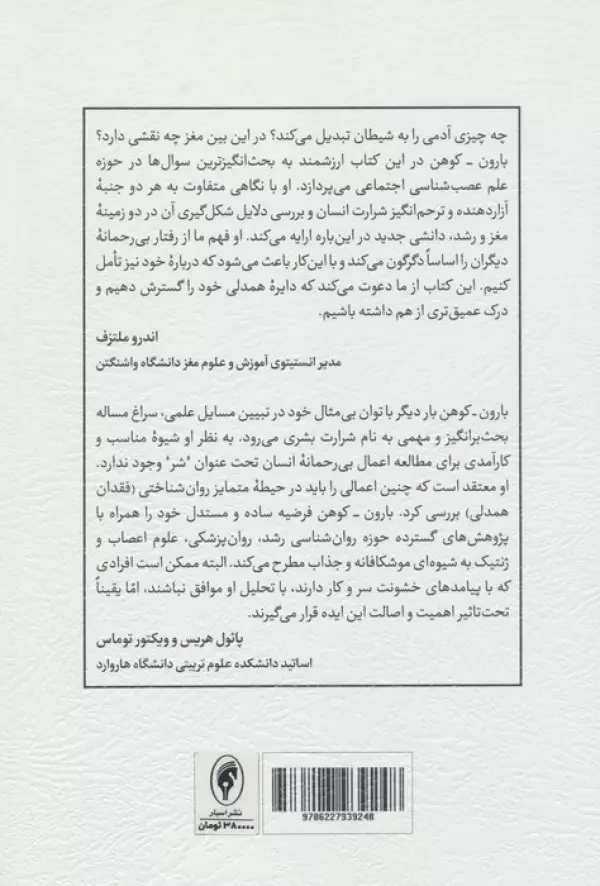 چه چیزی آدمی را به شیطان تبدیل می‌کند؟ در این بین مغز چه نقشی دارد؟
بارون ـ کوهن در این کتاب ارزشمند به بحث‌انگیزترین سوال‌ها در حوزه
علم عصب‌شناسی اجتماعی می‌پردازد. او با نگاهی متفاوت به هر دو جنبۀ
آزاردهنده و ترحم‌انگیز شرارت انسان و بررسی دلایل شکل‌گیری آن در دو زمینۀ
مغز و رشد، دانشی جدید در این‌باره ارایه می‌کند. او فهم ما از رفتار بی‌رحمانۀ
دیگران را اساساً دگرگون می‌کند و با این‌کار باعث می‌شود که دربارۀ خود نیز تأمل
کنیم. این کتاب از ما دعوت می‌کند که دایرۀ همدلی خود را گسترش دهیم و
درک عمیق‌تری از هم داشته باشیم.
اندرو ملتزف
مدیر انستیتوی آموزش و علوم مغز دانشگاه واشنگتن
بارون ـ کوهن بار دیگر با توان بی‌مثال خود در تبیین مسایل علمی، سراغ مساله
بحث‌برانگیز و مهمی به نام شرارت بشری می‌رود. به نظر او شیوۀ مناسب و
کارآمدی برای مطالعه اعمال بی‌رحمانۀ انسان تحت عنوان "شر" وجود ندارد.
او معتقد است که چنین اعمالی را باید در حیطۀ متمایز روان‌شناختی (فقدان
همدلی) بررسی کرد. بارون ـ کوهن فرضیه ساده و مستدل خود را همراه با
پژوهش‌های گسترده حوزه روان‌شناسی رشد، روان‌پزشکی، علوم اعصاب و
ژنتیک به شیوه‌ای موشکافانه و جذاب مطرح می‌کند. البته ممکن است افرادی
که با پیامدهای خشونت سر و کار دارند، با تحلیل او موافق نباشند، امّا یقیناً
تحت‌تاثیر اهمیت و اصالت این ایده قرار می‌گیرند.
پائول هریس و ویکتور توماس
اساتید دانشکده علوم تربیتی دانشگاه هاروارد
نشر اسبار
۳۸۰۰۰۰ تومان
9786227939248